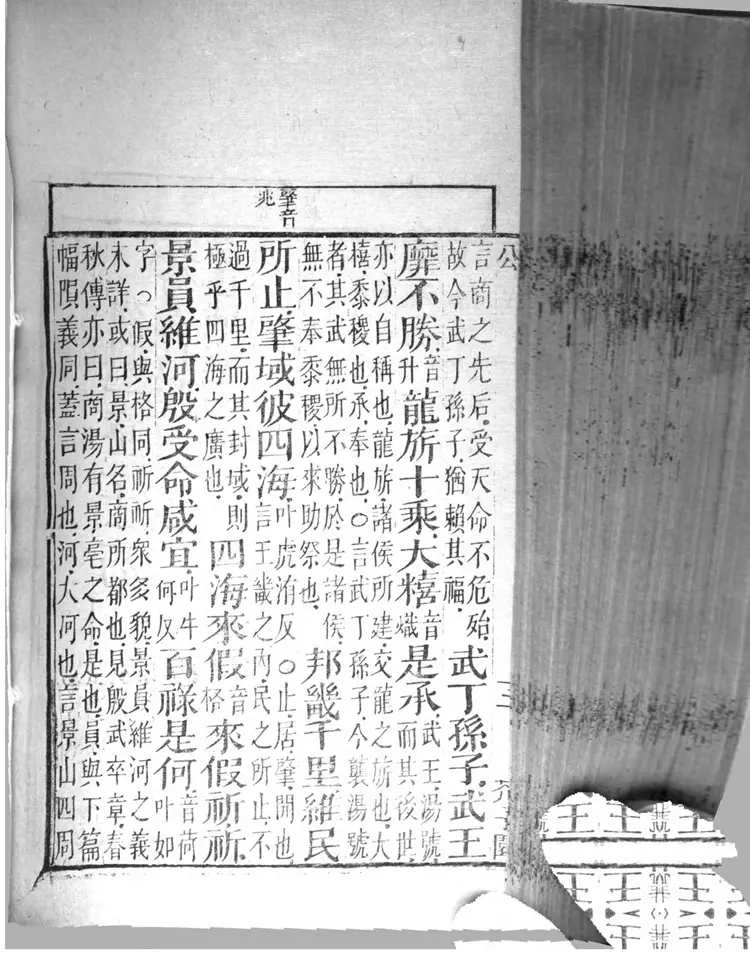 肇音
兆
言商之先后受天命不危殆
故今武丁孫子猶賴其福
武丁孫子武王
靡不勝音升龍旂十乘大糦音熾是承武王湯號
而其後世
亦以自稱也龍旂諸侯所建交龍之旂也大
糦黍稷也承奉也○言武丁孫子今襲湯號
者其武無所不勝於是諸侯
無不奉黍稷以來助祭也
邦畿千里維民
所止肇域彼四海叶虎洧反○止居肇開也
言王畿之內民之所止不
過千里而其封域則
極乎四海之廣也
四海來假音格來假祈祈
景員維河殷受命咸宜叶牛何反百祿是何音荷叶如
字○假與格同祈祈衆多貌景員維河之義
未詳或曰景山名商所都也見殷武卒章春
秋傳亦曰商湯有景亳之命是也員與下篇
幅隕義同蓋言周也河大河也言景山四周